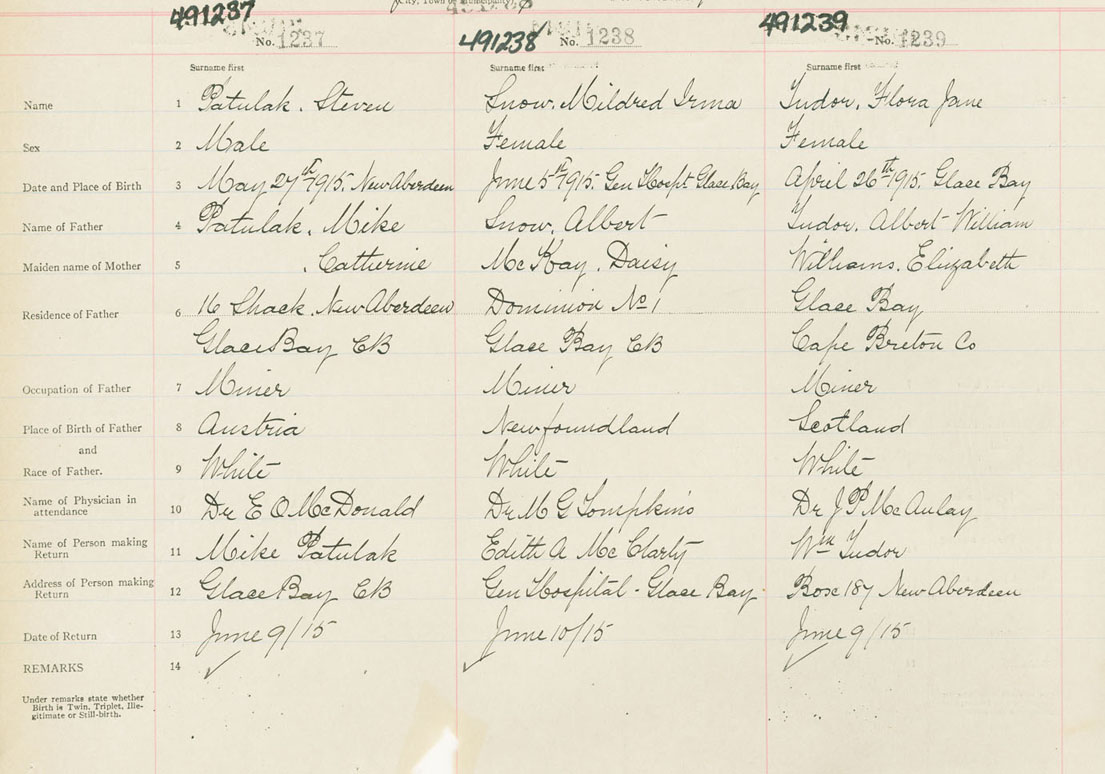 (City, Town or Municipality)
491237 No. 1237 491238 No. 1238 491239 No. 1239
Surname first Surname first Surname first
Name 1 Patulak, Steven Snow, Mildred Irma Tudor, Flora Jane
Sex 2 Male Female Female
Date and Place of Birth 3 May 27th 1915. New Aberdeen June 5th 1915. Gen Hospt Glace Bay April 26th 1915. Glace Bay
Name of Father 4 Patulak, Mike Snow, Albert Tudor, Albert William
Maiden name of Mother 5 , Catherine McKay, Daisy Williams, Elizabeth
Residence of Father 6 16 Shack, New Aberdeen Dominion No 1 Glace Bay
Glace Bay CB Glace Bay CB Cape Breton Co
Occupation of Father 7 Miner Miner Miner
Place of Birth of Father 8 Austria Newfoundland Scotland
and
Race of Father. 9 White White White
Name of Physician in attendance 10 Dr E O McDonald Dr M G Tompkins Dr J P McAulay
Name of Person making Return 11 Mike Patulak Edith A McClarty Wm Tudor
Address of Person making Return 12 Glace Bay CB Gen Hospital - Glace Bay Box 187 New Aberdeen
Date of Return 13 June 9/15 June 10/15 June 9/15
REMARKS 14 ✓ ✓ ✓
Under remarks state whether
Birth is Twin, Triplet, Ille-
gitimate or Still-birth.